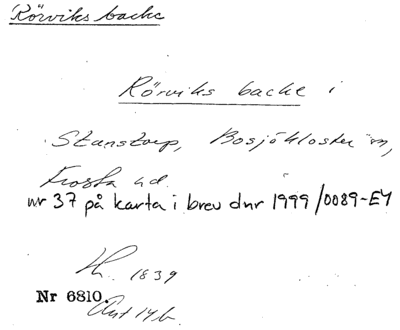 Rörviks backe
Rörviks backe i
Stanstorp, Bosjökloster sn,
Frosta hd.
nr 37 på karta i brev dnr 1999/0089-EY
1839
Nr 6810.